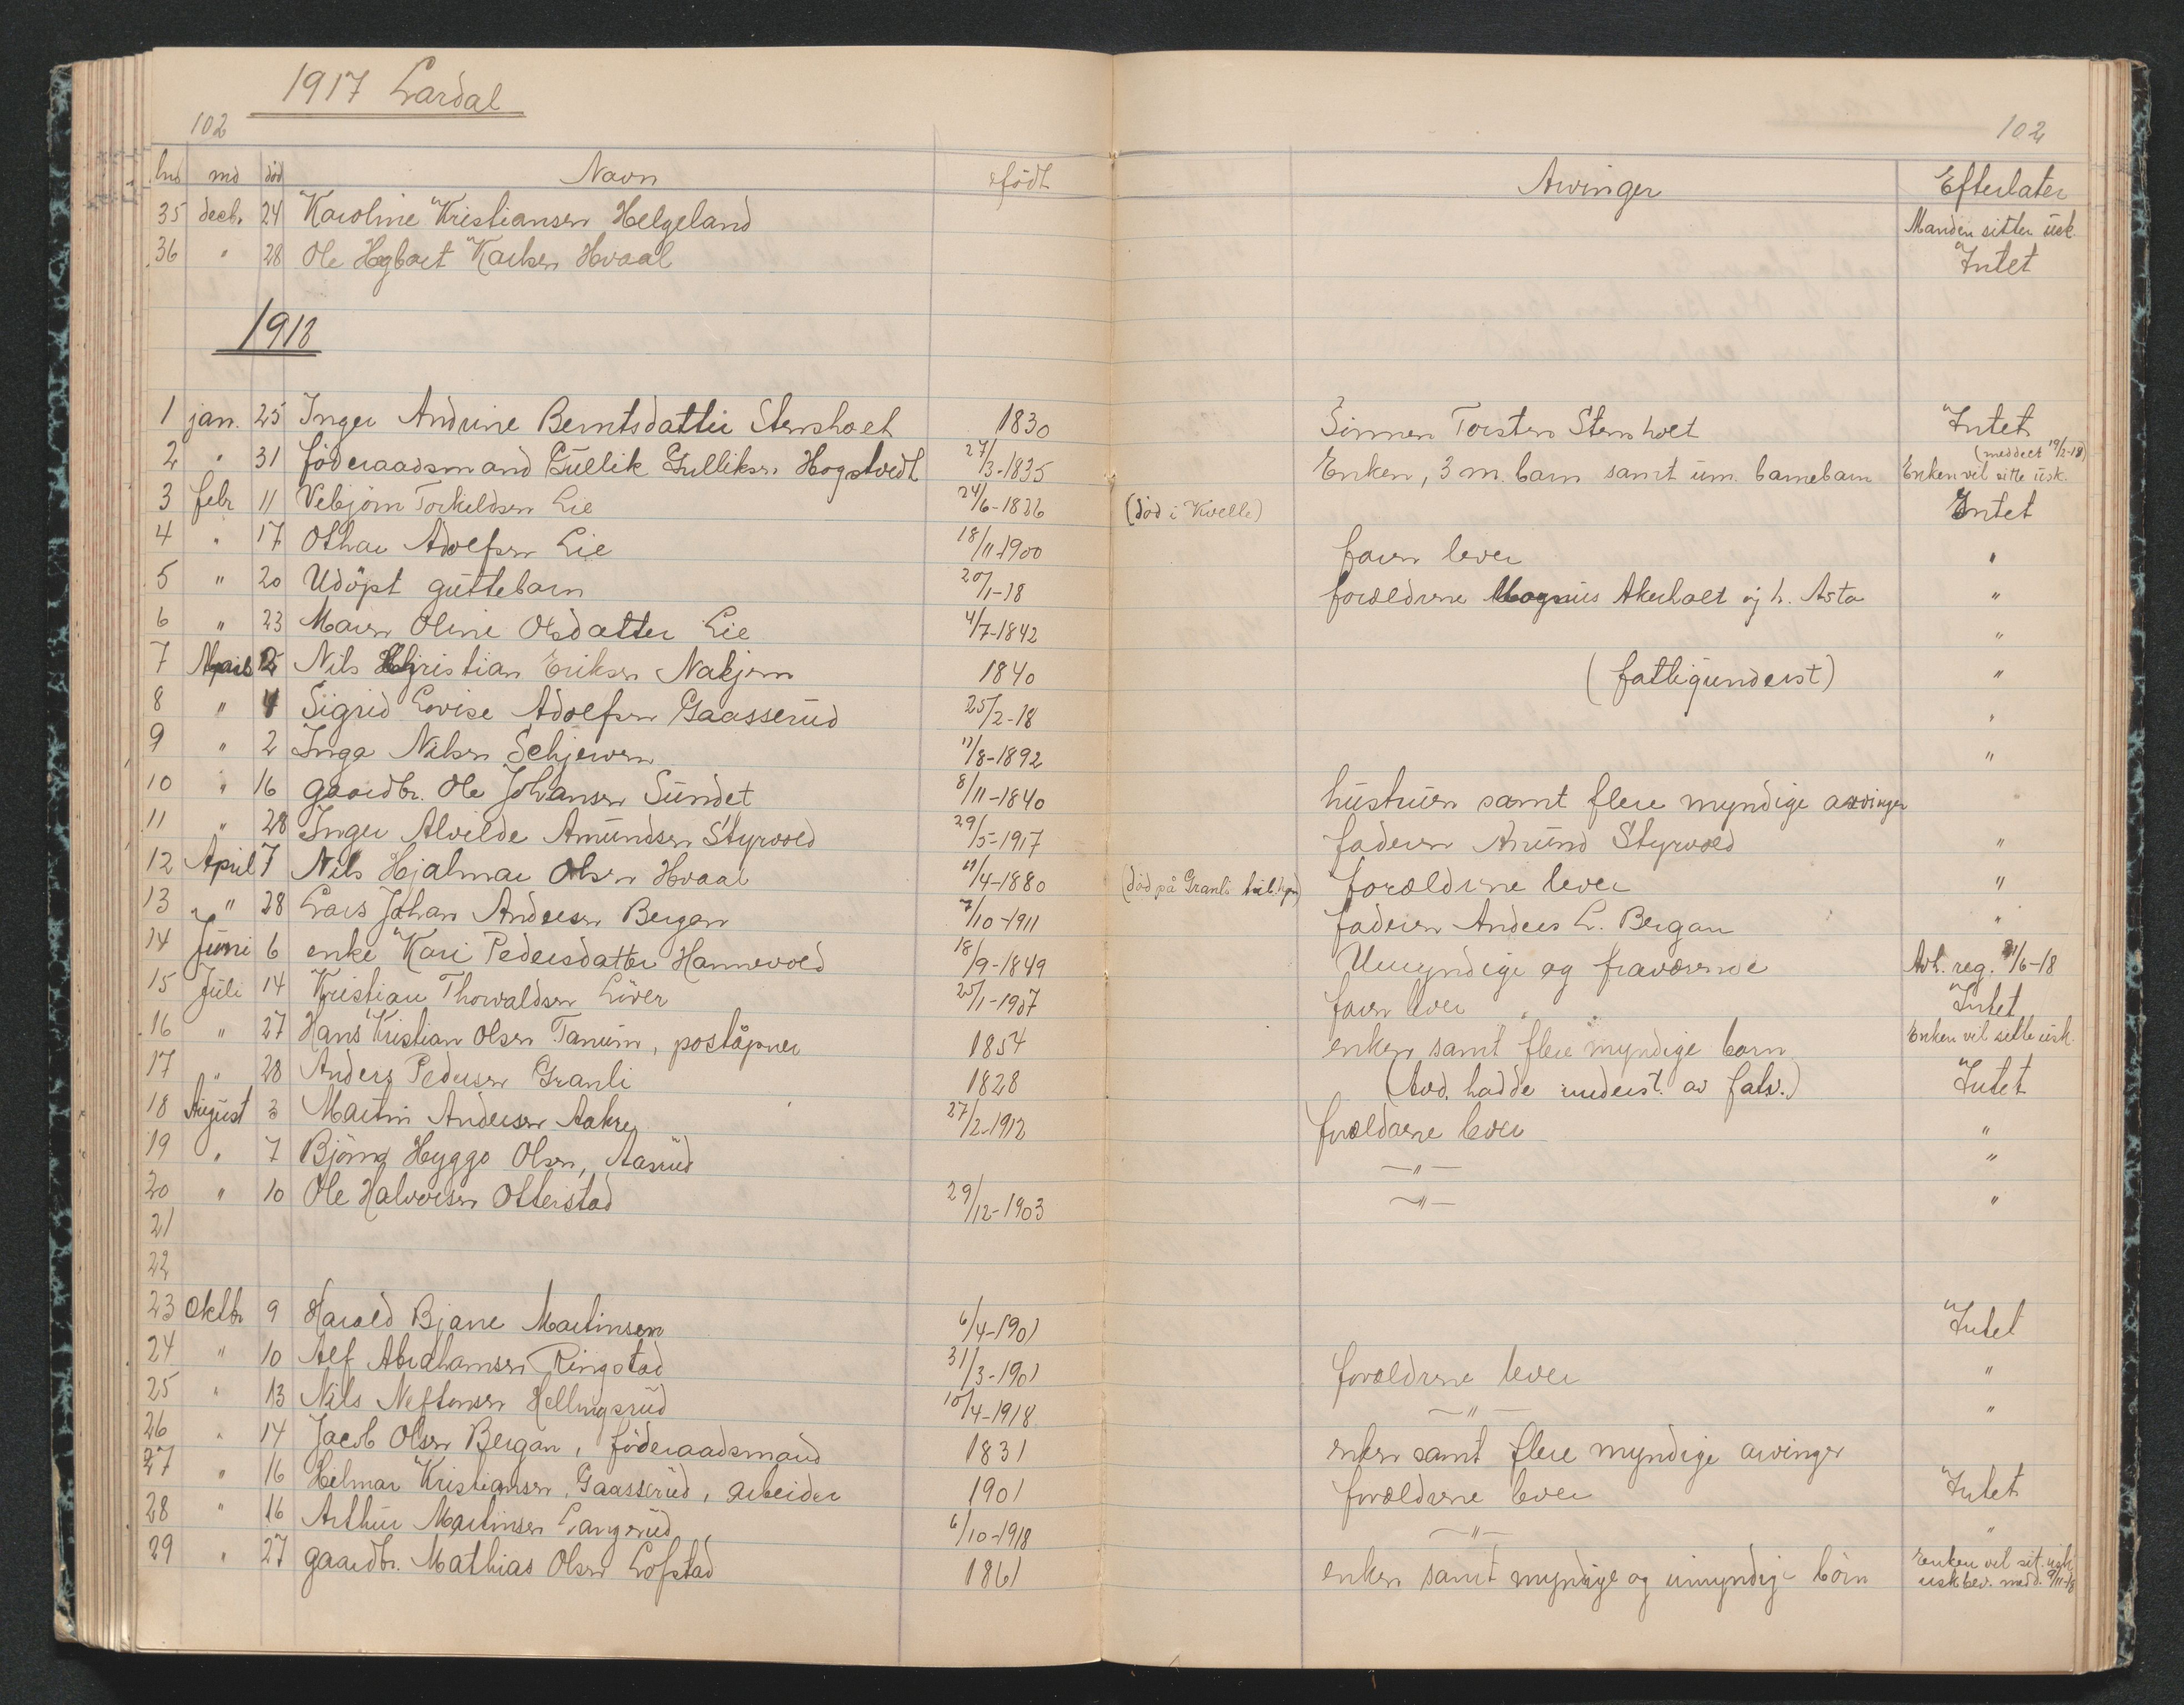 1917 Lardal
102
102
lnr md död Navn födt Arvinger Efterlater
35 decbr. 24 Karoline Kristiansen Helgeland Manden sitter usk.
36 " 28 Ole Hagbart Karlsen Hvaal Intet
1918
1 jan. 25 Inger Andrine Berntsdatter Stensholt 1830 Sönnen Torsten Stensholt Intet
2 " 31 föderaadsmand Gullik Gulliksen Hogstvedt 27/3-1835 Enken, 3 m. barn samt um. barnebarn Enken vil sitte usk. (meddelt 19/2-18)
3 febr 11 Vebjörn Torkildsen Lie 24/6-1826 (död i Kvelle) Intet
4 " 17 Othar Adolfsen Lie 18/11-1900 faren lever "
5 " 20 Udöpt guttebarn 20/1-18 forældrene Magnus Akerholt og h. Asta "
6 " 23 Maren Oline Olsdatter Lie 4/7-1842 "
7 Mars 2 Nils Christian Eriksen Nakjem 1840 (fattigunderst) "
8 " 4 Sigrid Lovise Adolfsen Gaasserud 25/2-18 "
9 " 2 Inga Nilsen Schjerven 17/8-1892 "
10 " 16 gaardbr. Ole Johansen Sundet 8/11-1840 hustruen samt flere myndige arvinger "
11 " 28 Inger Alvilde Amundsen Styrvold 29/5-1917 faderen Amund Styrvold "
12 April 7 Nils Hjalmar Olsen Hvaal 19/4-1880 (död på Granli) forældrene lever "
13 " 28 Lars Johan Andersen Bergan 7/10-1911 faderen Anders L. Bergan "
14 Juni 6 enke Kari Pedersdatter Hannevold 18/9-1849 Umyndige og fraværende Avh. reg. 21/6-18
15 Juli 14 Kristian Thorvaldsen Löver 25/1-1907 faren lever Intet
16 " 27 Hans Kristian Olsen Tanum, poståpner 1854 enken samt flere myndige barn Enken vil sitte usk.
17 " 28 Anders Pedersen Granli 1828 (Avd. hadde underst. av fatv.) Intet
18 August 3 Martin Andersen Aakre 27/2-1912 forældrene lever "
19 " 7 Björng Hyggo Olsen, Aasrud —"— "
20 " 10 Ole Halvorsen Otterstad 29/12-1903 —"— "
21
22
23 Oktbr 9 Harald Bjane Martinsen 6/4-1901 Intet
24 " 10 Alf Abrahamsen Ringstad 31/3-1901 forældrene lever "
25 " 13 Nils Neftensen Hellingsrud 15/4-1918 —"— "
26 " 14 Jacob Olsen Bergan, föderaadsmand 1831 enken samt flere myndige arvinger
27 " 16 Hilmar Kristiansen, Gaasserud, arbeider 1901 forældrene lever Intet
28 " 16 Arthur Martinsen Langerud 6/10-1918 —"— "
29 " 27 gaardbr. Mathias Olsen Lofstad 1861 enken samt myndige og umyndige börn Enken vil sit. usk.
uskbev. medd. 9/11-18